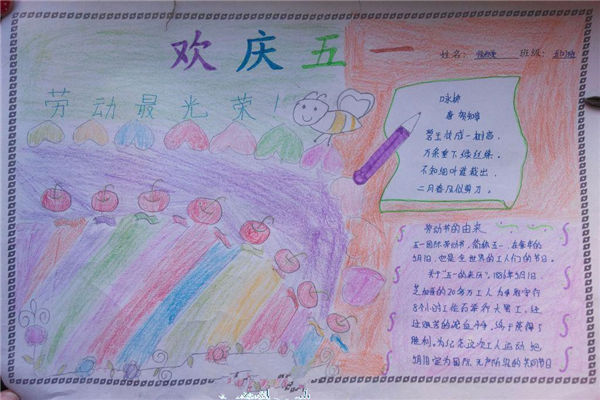 欢庆五一
姓名: 班级:
劳动最光荣!
咏柳
唐 贺知章
碧玉妆成一树高,
万条垂下绿丝绦。
不知细叶谁裁出,
二月春风似剪刀。
劳动节的由来
五一国际劳动节,简称五一,在每年的
5月1日,也是全世界的工人们的节日。
关于"五一的来历",1886年5月1日
芝加哥的20多万工人为争取实行
8个小时工作而举行大罢工,经
过艰苦的流血斗争,终于获得了
胜利。为纪念这次工人运动
5月1日定为国际无产阶级的共同节日